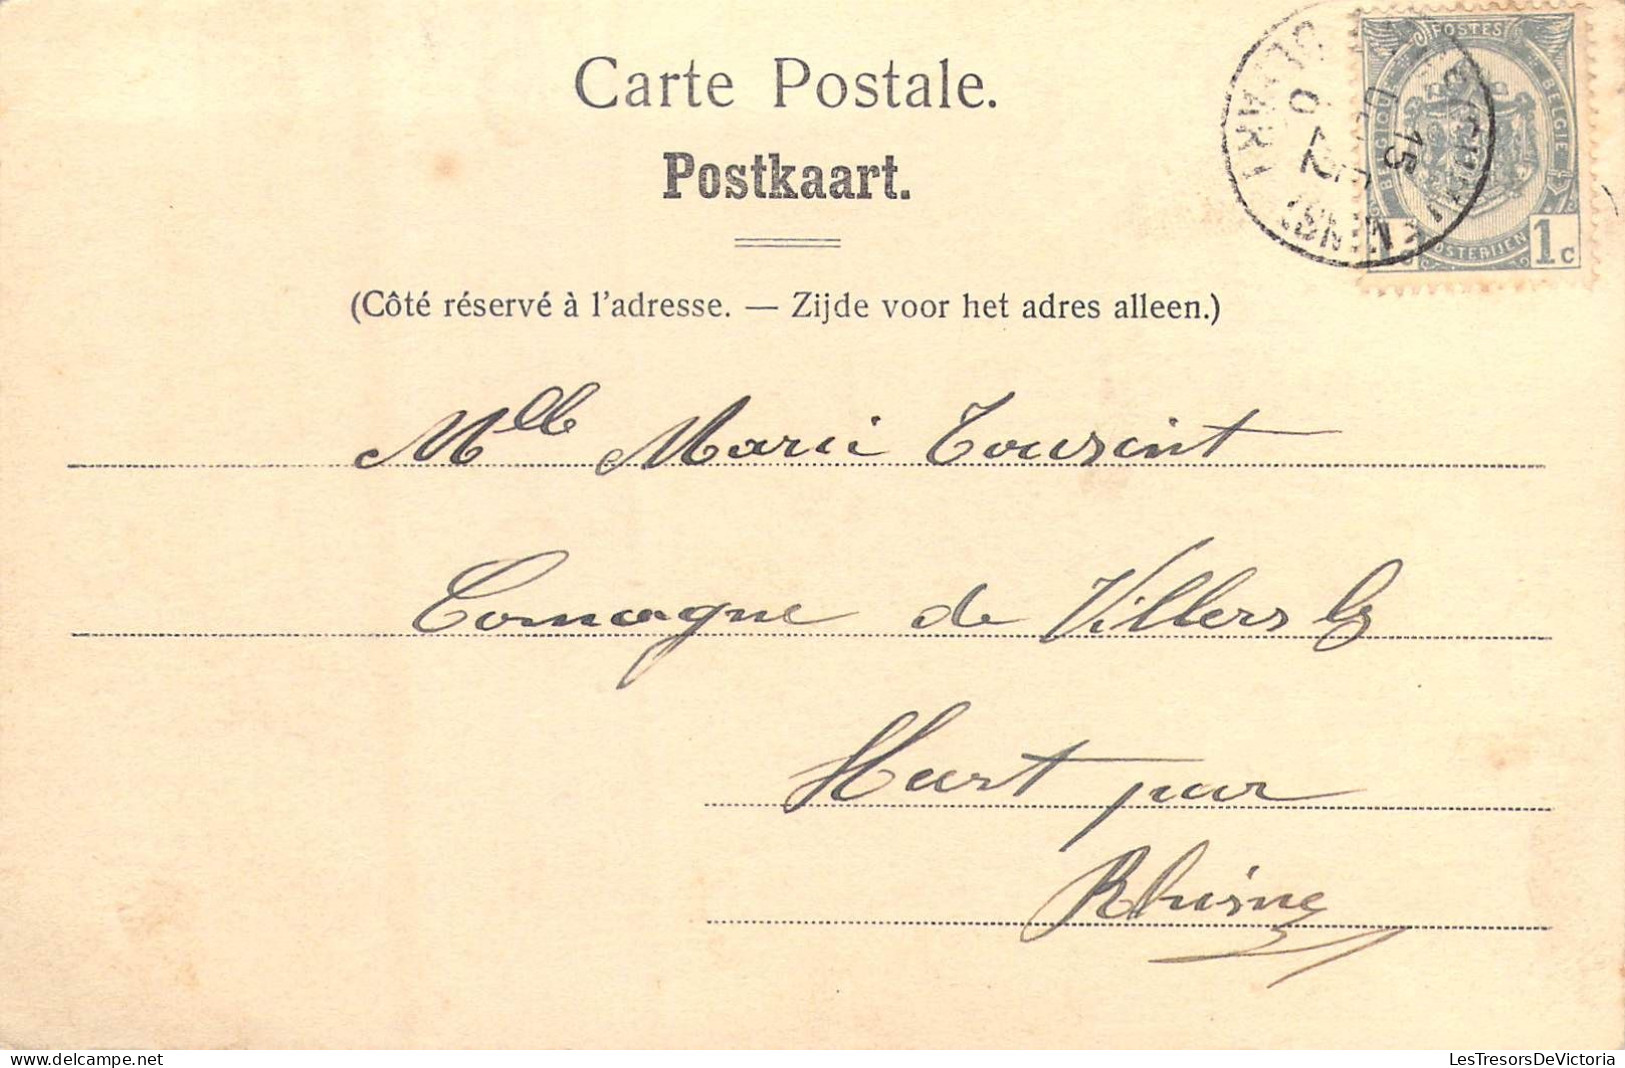 Carte Postale.
Postkaart.
(Côté réservé à l'adresse. — Zijde voor het adres alleen.)
POSTES
BELGIQUE BELGIE
POSTERIJEN
1c 1c
15
Mlle Marie Toursint
Comogne de Villers le
Hest par
Rhisne
LesTresorsDeVictoria